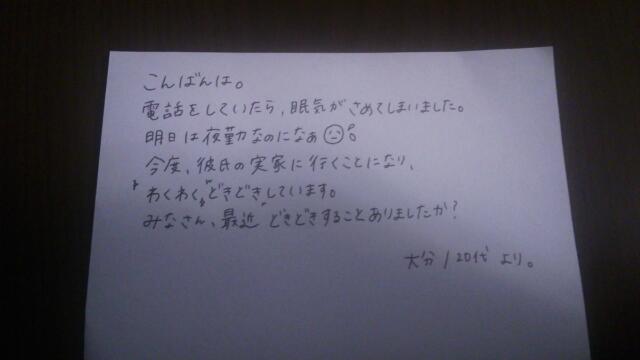 こんばんは。
電話をしていたら、眠気がさめてしまいました。
明日は夜勤なのになぁ
今度、彼氏の実家に行くことになり、
わくわく、どきどきしています。
みなさん、最近どきどきすることありましたか？
大分/20代 より。